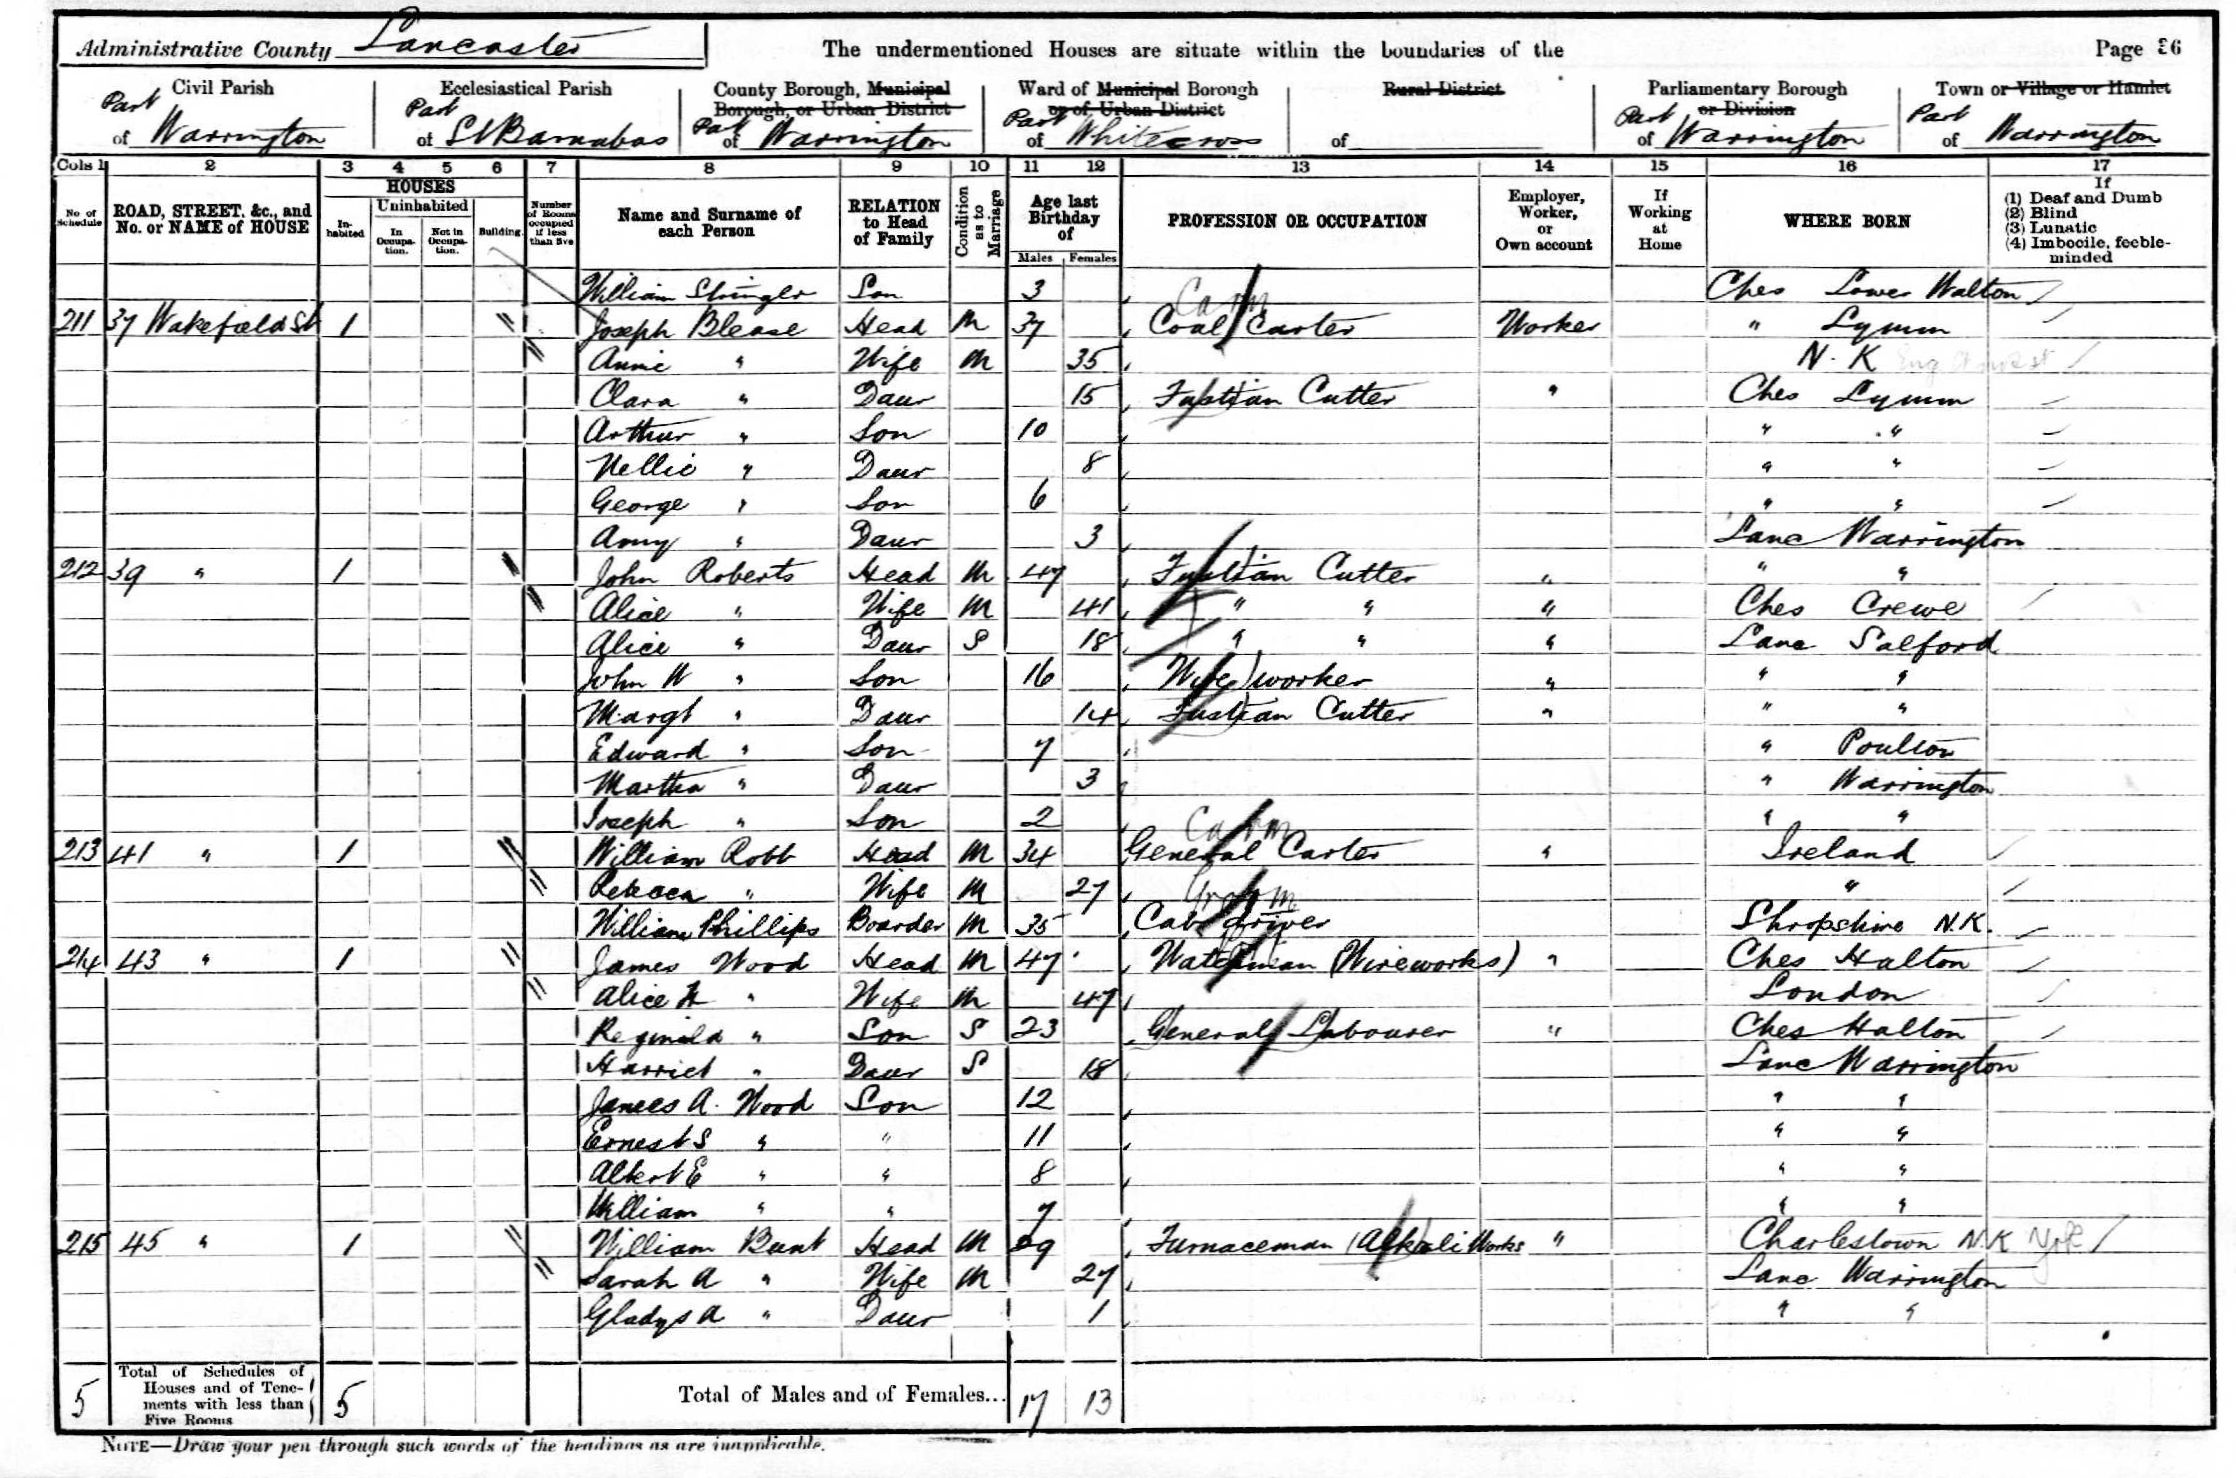 Administrative County Lancaster The undermentioned Houses are situate within the boundaries of the Page 36
Civil Parish Ecclesiastical Parish County Borough, Municipal Borough, or Urban District Ward of Municipal Borough or of Urban District Rural District Parliamentary Borough or Division Town or Village or Hamlet
Part of Warrington Part of St Barnabas Part of Warrington Part of Whitecross of Part of Warrington Part of Warrington
Cols 1 2 3 4 5 6 7 8 9 10 11 12 13 14 15 16 17
No of Schedule ROAD, STREET, &c., and No. or NAME of HOUSE HOUSES Inhabited Uninhabited In Occupation. Not in Occupation. Building. Number of Rooms occupied if less than five Name and Surname of each Person RELATION to Head of Family Condition as to Marriage Age last Birthday of Males Females PROFESSION OR OCCUPATION Employer, Worker, or Own account If Working at Home WHERE BORN If (1) Deaf and Dumb (2) Blind (3) Lunatic (4) Imbecile, feeble-minded
William Stringer Son 3 Ches Lower Walton
211 37 Wakefield St 1 Joseph Blease Head M 37 Coal Carter Carm Worker " Lymm
Annie " Wife M 35 N. K
Clara " Daur 15 Fustian Cutter " Ches Lymm
Arthur " Son 10 " "
Nellie " Daur 8 " "
George " Son 6 " "
Amy " Daur 3 Lanc Warrington
212 39 " 1 John Roberts Head M 47 Fustian Cutter " " "
Alice " Wife M 41 " " " Ches Crewe
Alice " Daur S 18 " " " Lanc Salford
John W " Son 16 Wire worker " " "
Margt " Daur 14 Fustian Cutter " " "
Edward " Son 7 " Poulton
Martha " Daur 3 " Warrington
Joseph " Son 2 " "
213 41 " 1 William Robb Head M 34 General Carter Carm " Ireland
Rebecca " Wife M 27 "
William Phillips Boarder M 35 Cab driver Groom Shropshire N.K.
214 43 " 1 James Wood Head M 47 Watchman (Wireworks) " Ches Halton
Alice H " Wife M 47 London
Reginald " Son S 23 General Labourer " Ches Halton
Harriet " Daur S 18 Lanc Warrington
James A. Wood Son 12 " "
Ernest S " " 11 " "
Albert E " " 8 " "
William " " 7 " "
215 45 " 1 William Bunt Head M 29 Furnaceman (Alkali Works " Charlestown N K
Sarah A " Wife M 27 Lanc Warrington
Gladys A " Daur 1 " "
5 Total of Schedules of Houses and of Tenements with less than Five Rooms 5 Total of Males and of Females... 17 13
NOTE—Draw your pen through such words of the headings as are inapplicable.